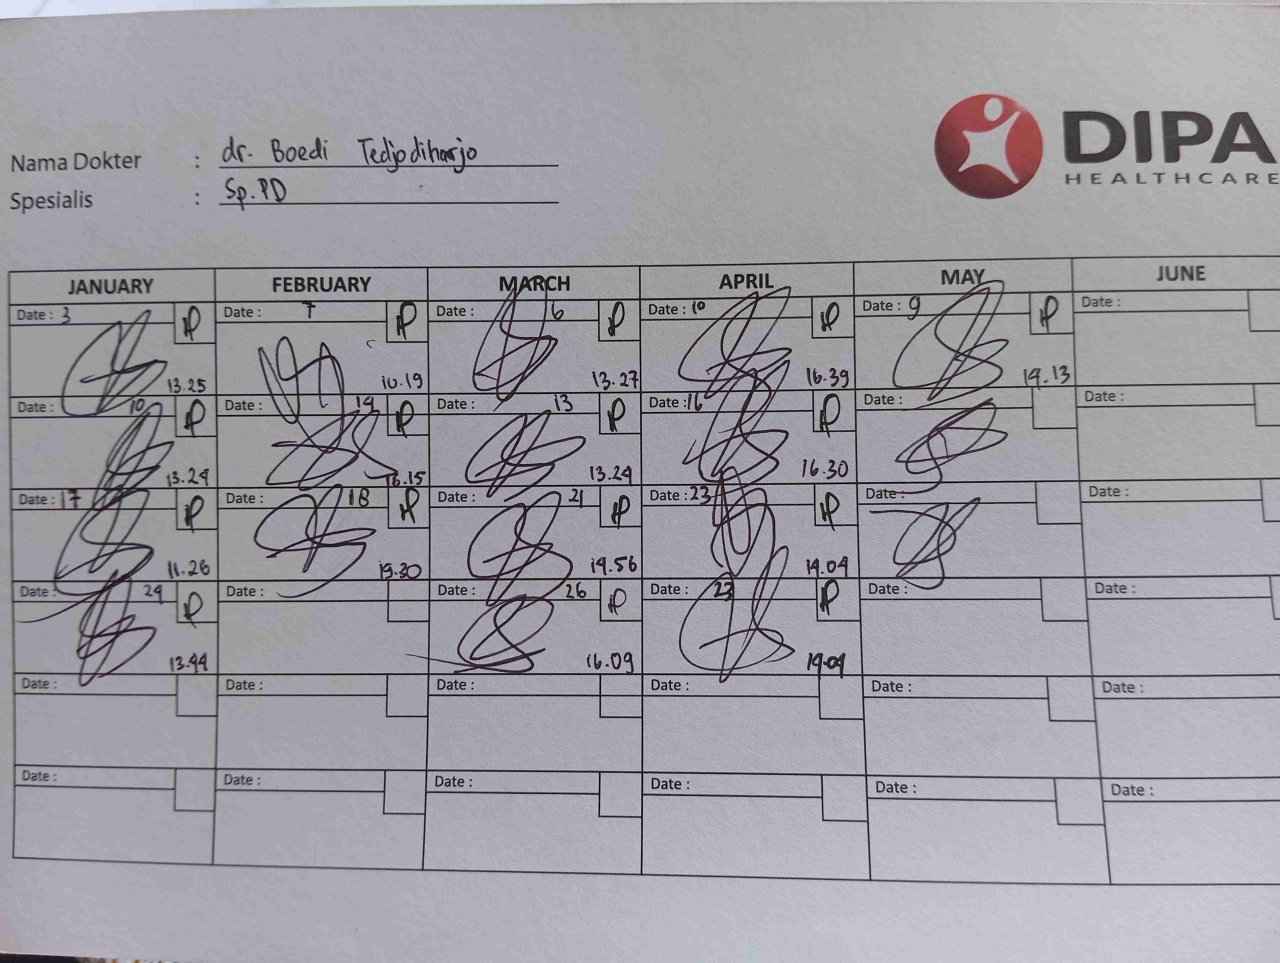 Nama Dokter : dr. Boedi Tedjodiharjo
Spesialis : Sp.PD
DIPA
HEALTHCARE
JANUARY FEBRUARY MARCH APRIL MAY JUNE
Date : 3 Date : 7 Date : 6 Date : 10 Date : 9 Date :
13.25 10.19 13.27 16.39 19.13
Date : 10 Date : 14 Date : 13 Date : 16 Date : Date :
13.24 16.15 13.24 16.30
Date : 17 Date : 18 Date : 21 Date : 23 Date : Date :
11.26 19.30 19.56 19.04
Date : 24 Date : Date : 26 Date : 23 Date : Date :
13.44 16.09 19.04
Date : Date : Date : Date : Date : Date :
Date : Date : Date : Date : Date : Date :